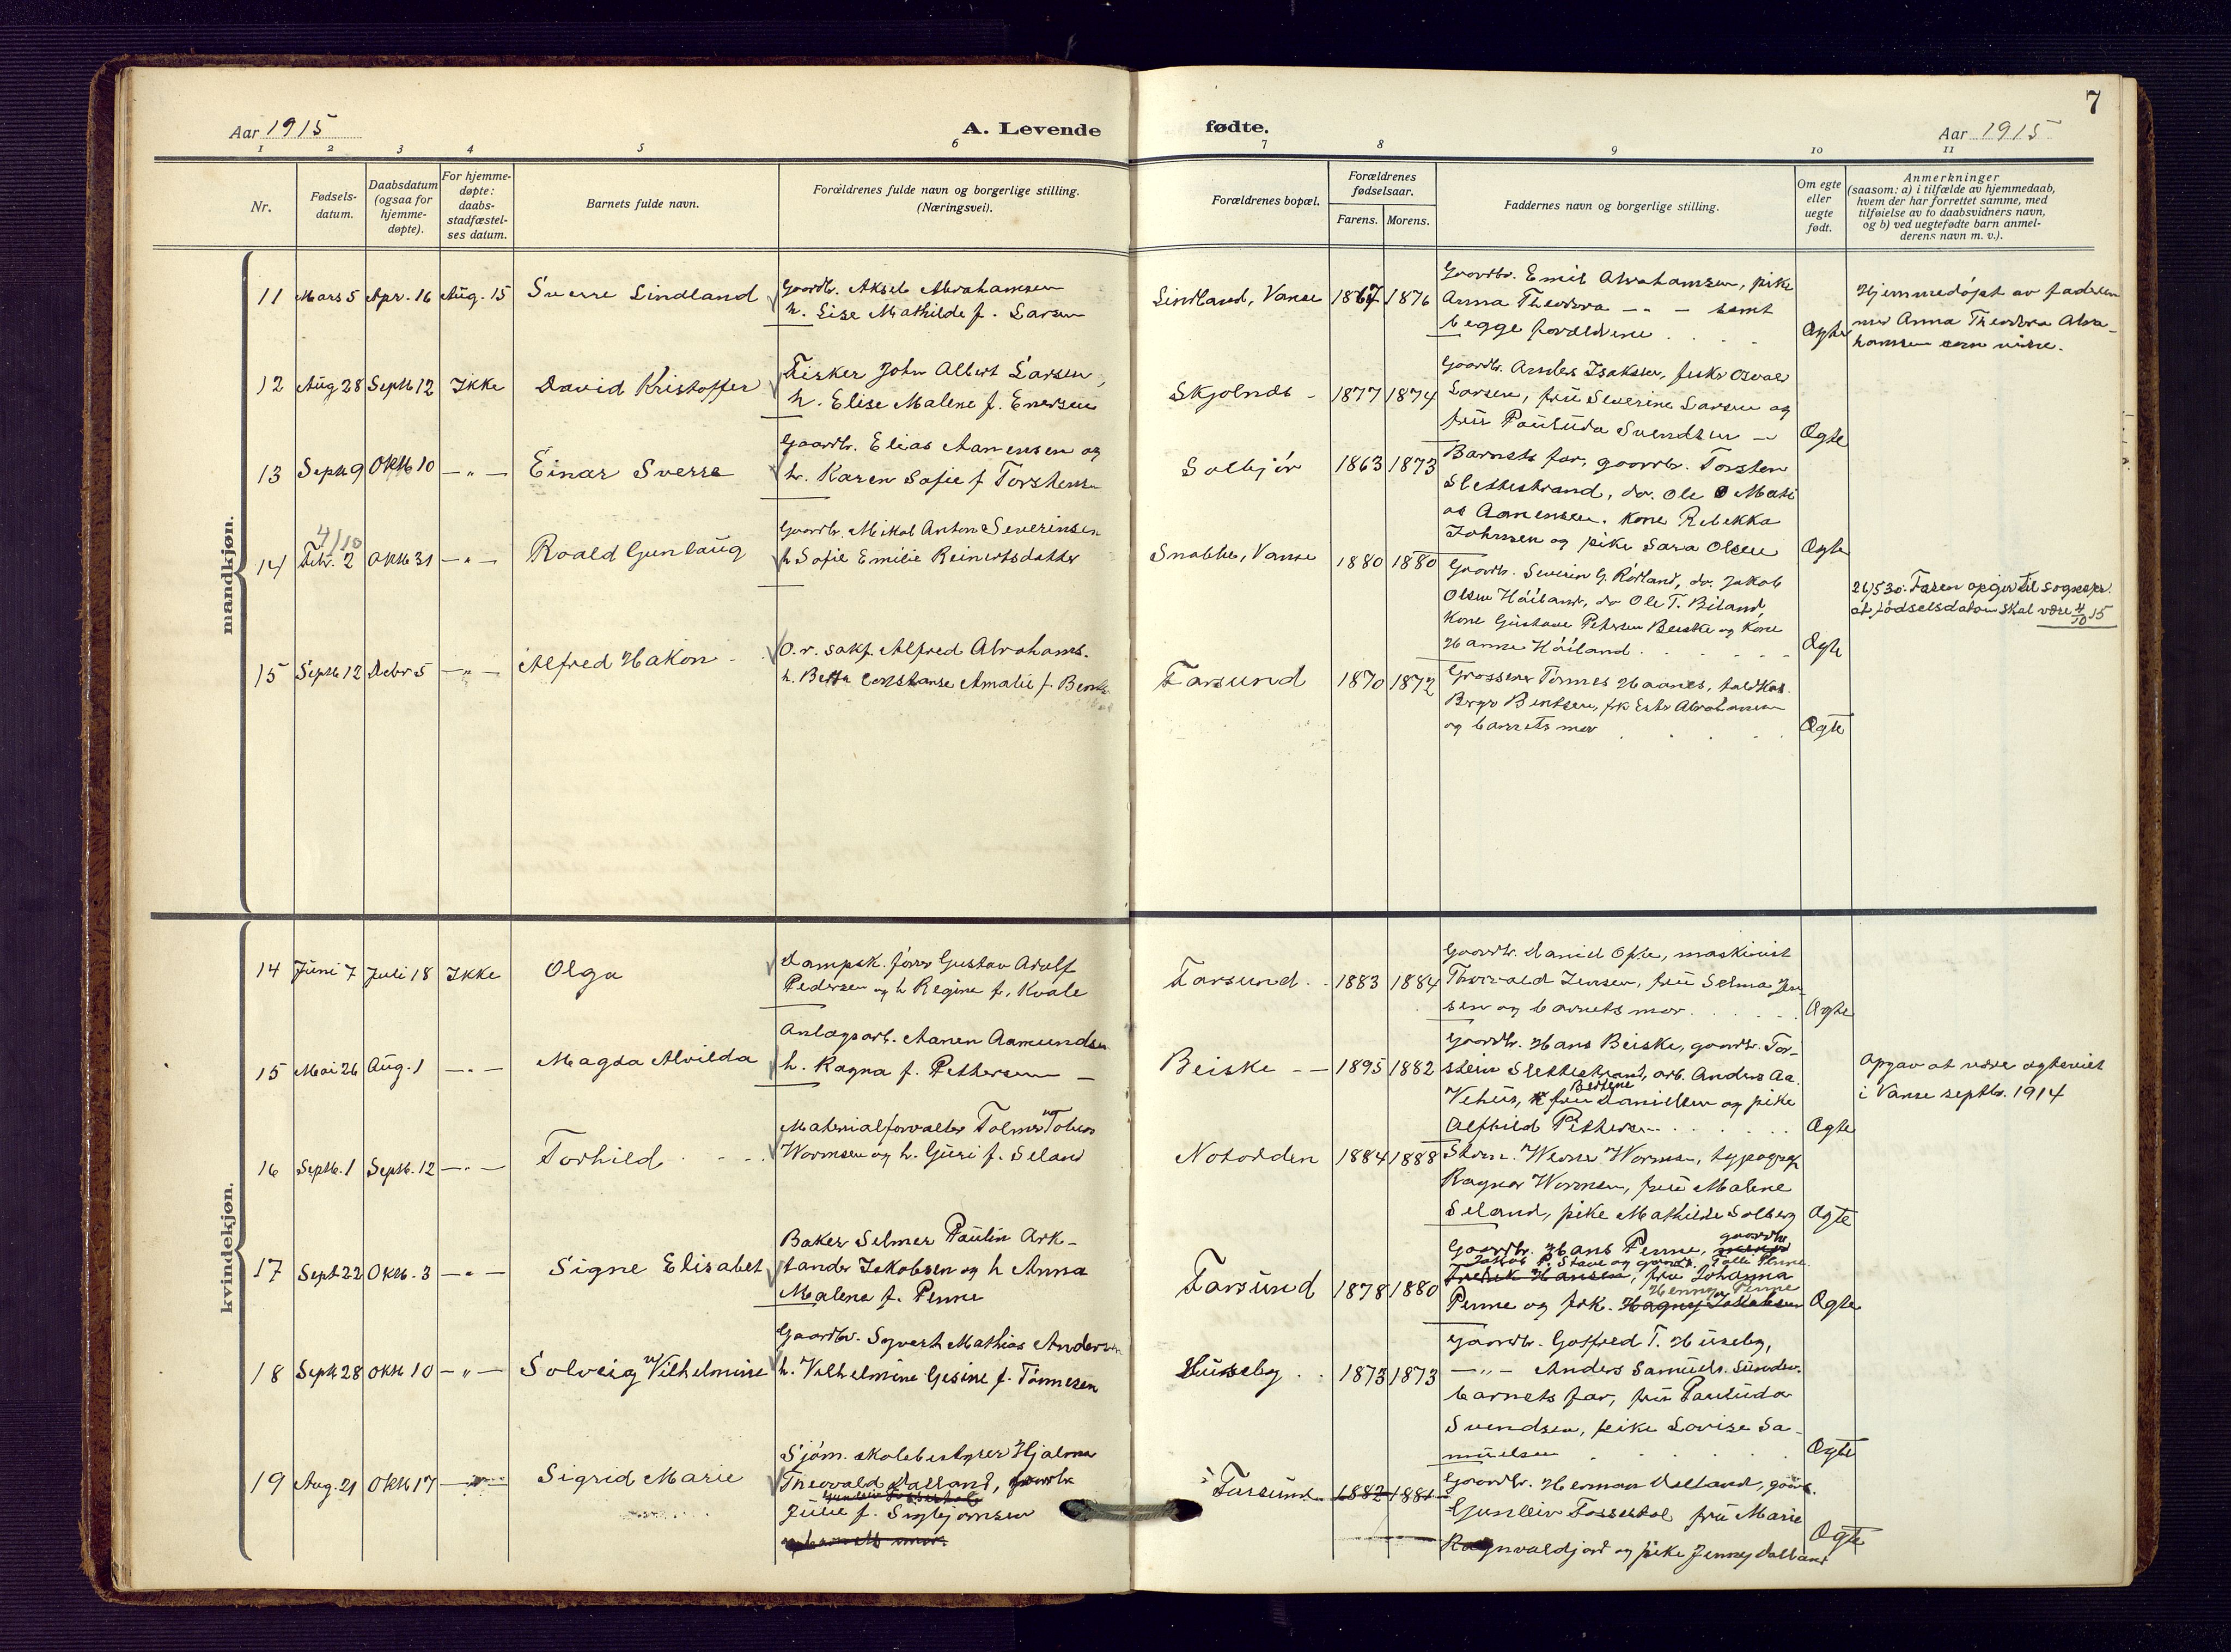 7
Aar 1915
A. Levende
fødte.
Aar 1915
1 2 3 4 5 6 7 8 9 10 11
Nr.
Fødsels-
datum.
Daabsdatum
(ogsaa for
hjemme-
døpte).
For hjemme-
døpte:
daabs-
stadfæstel-
ses datum.
Barnets fulde navn.
Forældrenes fulde navn og borgerlige stilling.
(Næringsvei).
Forældrenes bopæl.
Forældrenes
fødselsaar.
Farens.
Morens.
Faddernes navn og borgerlige stilling.
Om egte
eller
uegte
født.
Anmerkninger
(saasom: a) i tilfælde av hjemmedaab,
hvem der har forrettet samme, med
tilføielse av to daabsvidners navn,
og b) ved uegtefødte barn anmel-
derens navn m. v.).
mandkjøn.
11 Mars 5 Apr. 16 Aug. 15 Sverre Lindland
Gaardbr. Aksel Abrahamsen
h. Lise Mathilde f. Larsen
Lindland, Vanse 1867 1876
Gaardbr. Emil Abrahamsen, pike
Anna Theodora - " - samt
begge forældrene
Ægte
Hjemmedøpt av faderen
med Anna Theodora Abra-
hamsen som vidne.
12 Aug 28 Septb 12 Ikke David Kristoffer
Fisker John Albert Larsen,
h. Elise Malene f. Enersen
Skjolnes - 1877 1874
Gaardbr. Anders Isaksen, fisker Osvald
Larsen, frü Severine Larsen og
frü Pauluda Svendsen
Ægte
13 Septb 9 Oktb 10 - " - Einar Sverre
Gaardbr. Elias Aanensen og
h. Karen Sofie f Torstens
Solbjør 1863 1873
Barnets far, gaardbr. Torsten
Slettestrand, do. Ole Mati
as Aanensen. Kone Rebekka
Johnsen og pike Sara Olsen
Ægte
4/10
14 Febr. 2 Oktb 31 - " - Roald Gunlaug
Gaardbr. Mikal Anton Severinsen
h Sofie Emilie Reinertsdatter
Snabbe, Vanse 1880 1880
Gaardbr. Severin G. Rörland, do. Jakob
Olsen Höiland, do Ole T. Biland,
Kone Gustave Petersen Beiske og Kone
Hanne Höiland
Ægte
26/5 30. Faren opgir til sognepr.
at fødselsdatoen skal være 4/10 15
15 Septb 12 Debr 5 - " - Alfred Hakon
O.r. sakf. Alfred Abrahams.
h. Betta Constanse Amalie f. Bents
Farsund 1870 1872
Grosserer Tönnes Haanes, toldkas.
Birger Bentsen, frk Ester Abrahamsen
og barnets mor
Ægte
kvindekjøn.
14 Juni 7 Juli 18 Ikke Olga
Dampsk. fører Gustav Adolf
Pedersen og h Regine f. Kvale
Farsund 1883 1884
Gaardbr. Daniel Ofte, maskinist
Thorvald Jensen, frü Selma Jen
sen og barnets mor
Ægte
15 Mai 26 Aug. 1 - " - Magda Alvilda
Anlægsarb. Aanen Aamundsen
h. Ragna f. Pettersen
Beiske 1895 1882
Gaardbr. Hans Beiske, gaardbr. Tor-
stein Slettestrand, arb. Anders Aa.
Vehus, frü Bertine Danielsen og pike
Alfhild Pettersen
Ægte
Opgav at være egteviet
i Vanse septbr. 1914
16 Septb. 1 Septb. 12 - " - Torhild
Materialforvalter Tolmer Tobias
Wormsen og h. Guri f. Seland
Notodden 1884 1888
Werner Wormsen, typograf
Ragnar Wormsen, frü Malene
Seland, pike Mathilde Solberg
Ægte
17 Sept 22 Oktb. 3 - " - Signe Elisabet
Baker Selmer Paulin Ark-
tander Jakobsen og h Anna
Malena f. Penne
Farsund 1878 1880
Gaardbr. Hans Penne, gaardbr.
Jakob P. Stave og gaardb. Tolli Penne
Fredrik Hansen, frü Johanna
Henny Penne
Penne og frk. Hagny Jakobsen
Ægte
18 Septb 28 Oktb 10 - " - Solveig Vilhelmine
Gaardbr. Syvert Mathias Andersen
h. Vilhelmine Gesine f. Tönnesen
Huseby 1873 1873
Gaardbr. Gotfred T. Huseby,
- " - Anders Samuels. Sunde
barnets far, frü Pauluda
Svendsen, pike Lovise Sa-
muelsen
Ægte
19 Aug. 21 Oktb 17 - " - Sigrid Marie
Sjøm. skolebestyrer Hjalmar
Theovald Dalland, gaardbr
Gunleiv Fossestol
Julie f. Snebjørnsen
og barnets mor.
Farsund 1882 1881
Gaardbr. Herman Dalland, gaardb.
Gunleiv Fossestol frü Marie
Ragnvaldjord og pike Jenny Dalland
Ægte